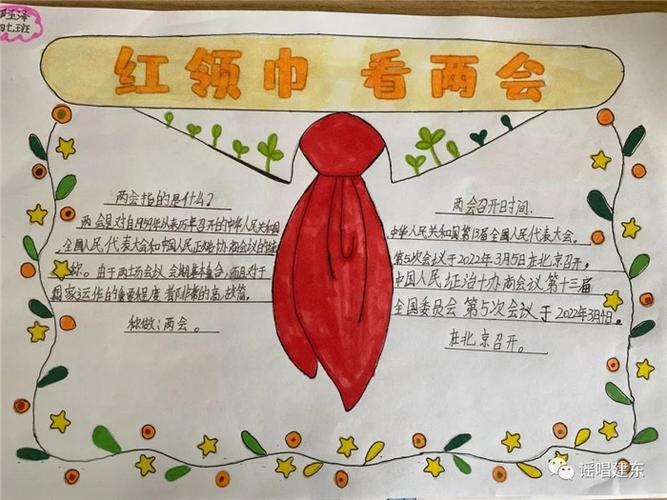 红领巾 看两会
两会指的是什么？
两会是对自1959年以来历年召开的中华人民共和国
全国人民代表大会和中国人民政治协商会议的统
称。由于两场会议会期基本重合，而且对于
国家运作的重要程度都非常的高，故简
称做：两会。
两会召开时间：
中华人民共和国第13届全国人民代表大会。
第5次会议于2022年3月5日在北京召开，
中国人民政治协商会议第十三届
全国委员会第5次会议于2022年3月4日。
在北京召开。
谣唱建东